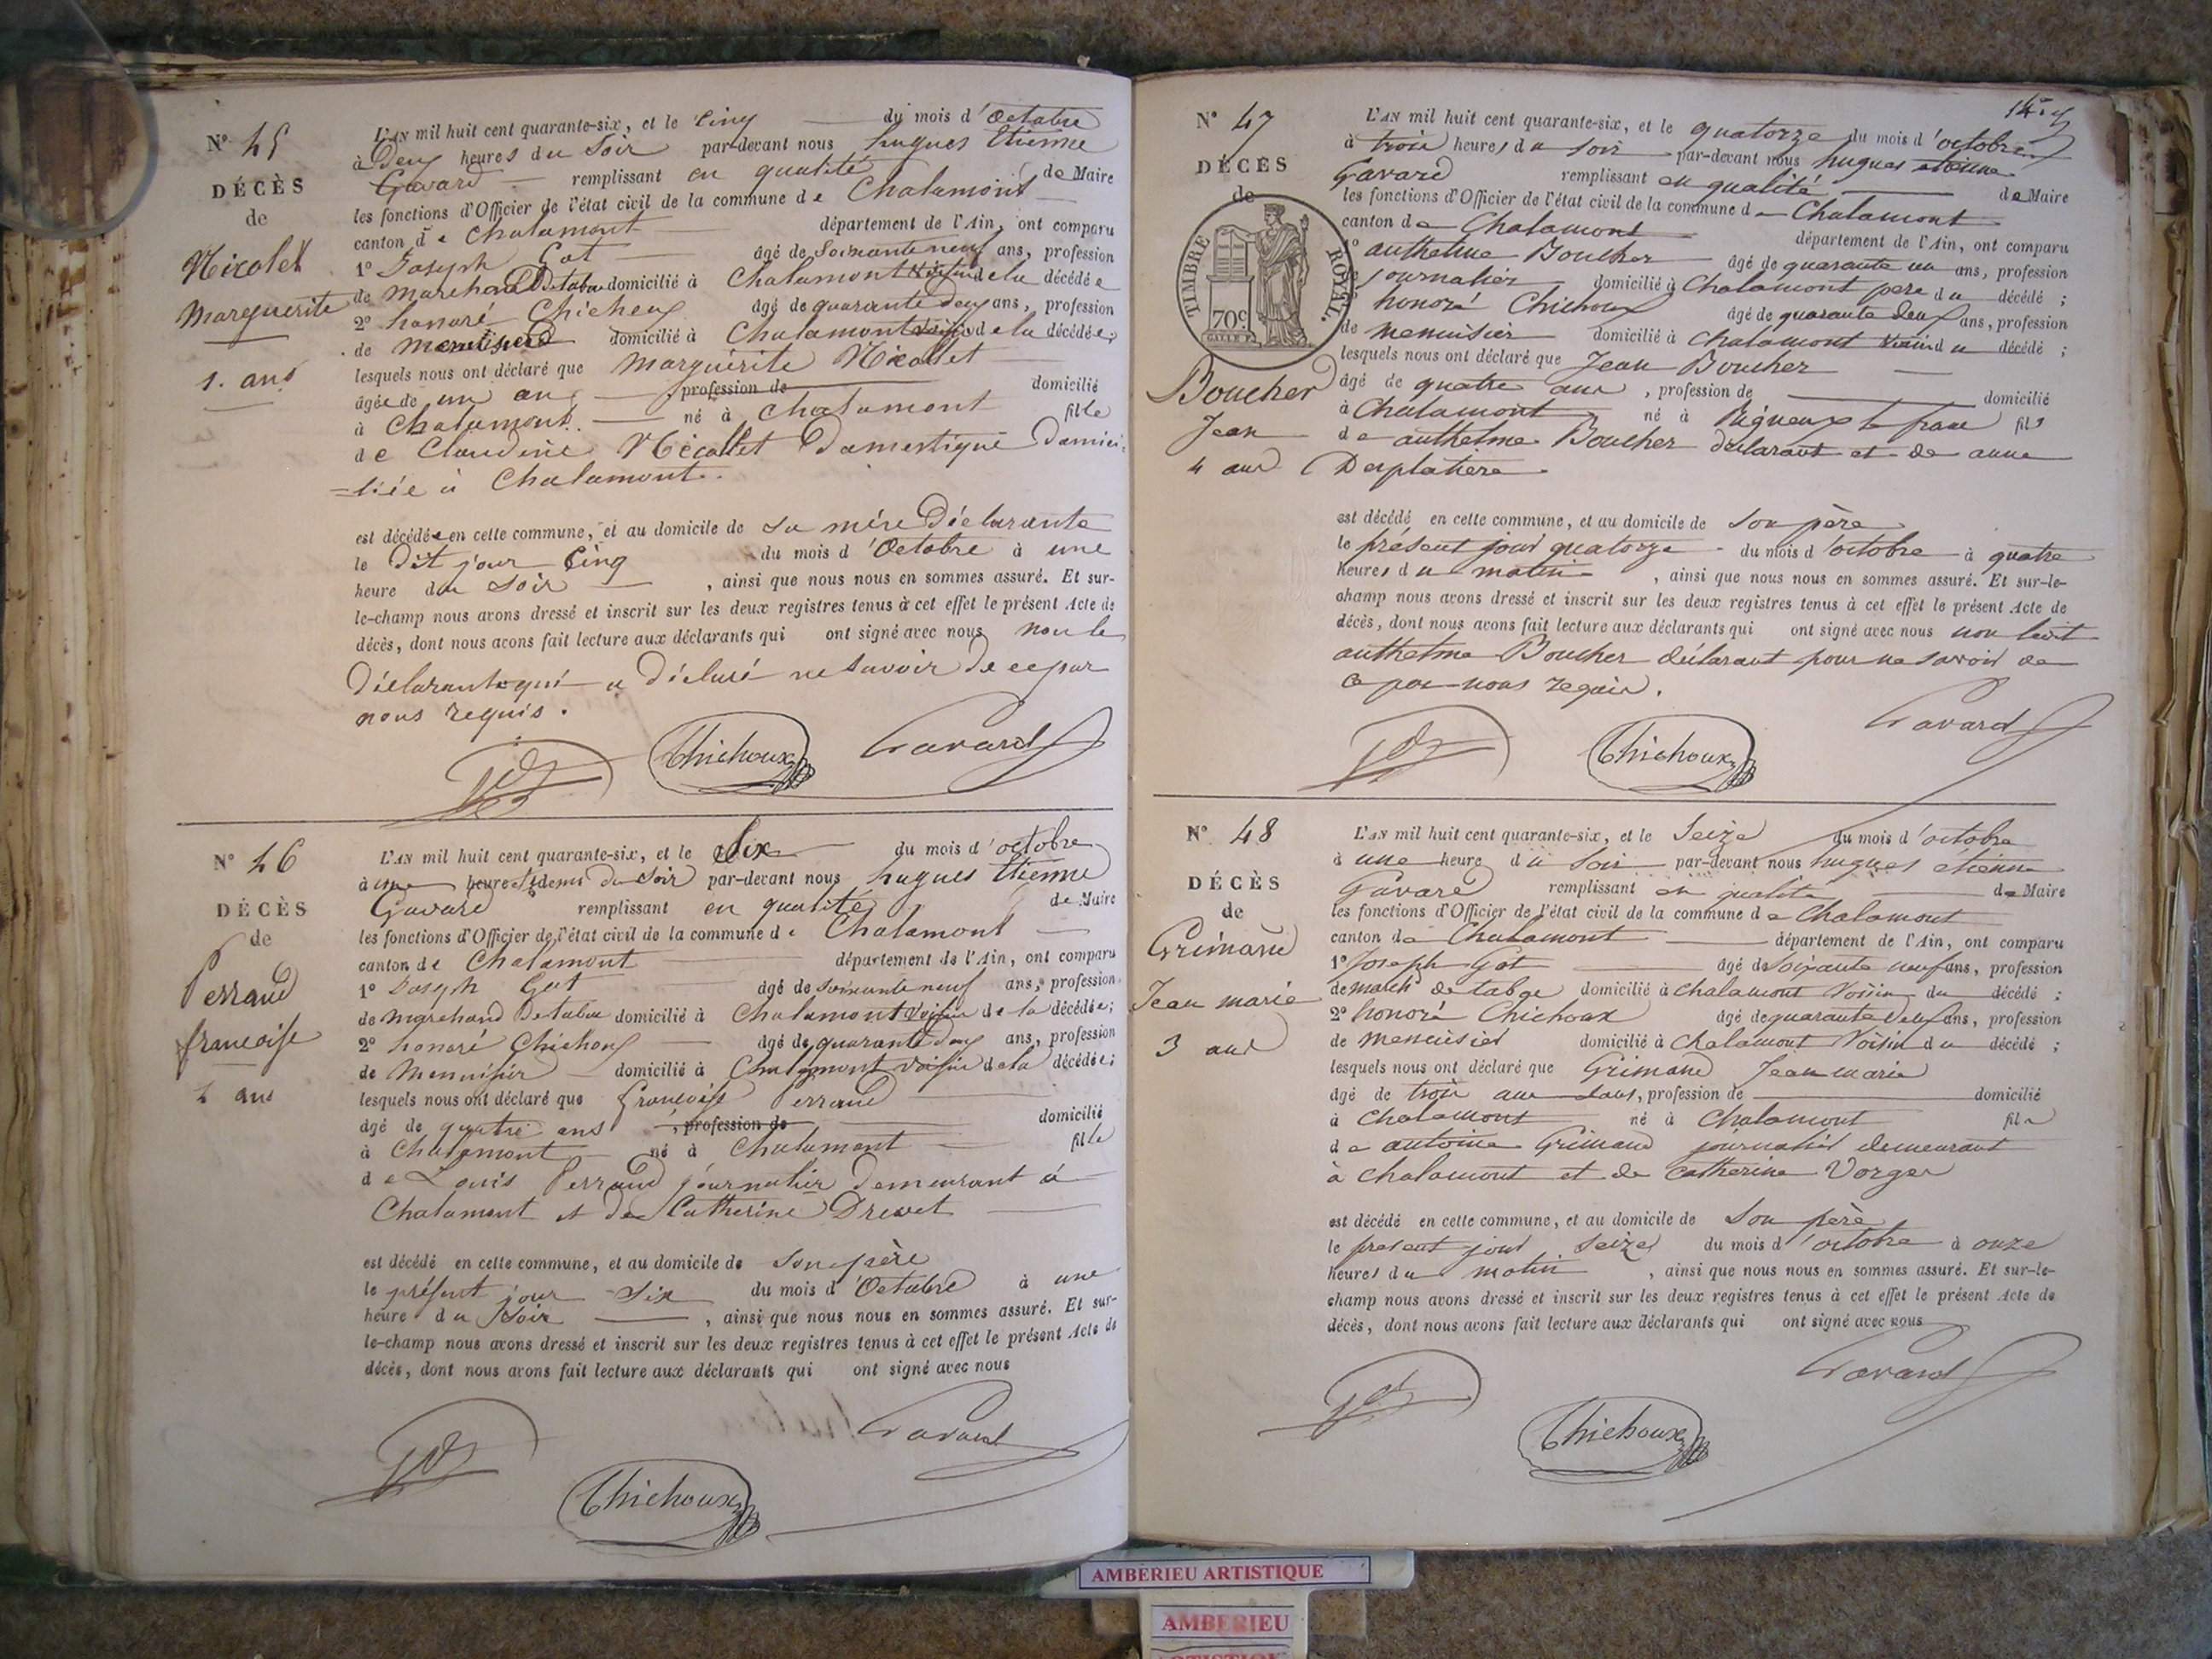 N° 45
DÉCÈS
de
Nicolet
Marguerite
1. ans
L'AN mil huit cent quarante-six, et le Cinq du mois d'Octobre
à Deux heures du Soir par-devant nous hugues Etienne
Gavard remplissant en qualité de Maire
les fonctions d'Officier de l'état civil de la commune de Chalamont
canton de Chalamont département de l'Ain, ont comparu
1° Joseph Got âgé de Soixante neuf ans, profession
de marchand De tabac domicilié à Chalamont Voisin de la décédée
2° honoré Chichoux âgé de quarante deux ans, profession
de menuisier domicilié à Chalamont voisin de la décédée
lesquels nous ont déclaré que Marguérite Nicollet
âgée de un an , profession de domicilié
à Chalamont. né à Chalamont fille
de Claudine Nicollet Domestique Domici-
=liée à Chalamont.
est décédée en cette commune, et au domicile de sa mère Déclarante
le Dit jour Cinq du mois d'Octobre à une
heure du Soir , ainsi que nous nous en sommes assuré. Et sur-
le-champ nous avons dressé et inscrit sur les deux registres tenus à cet effet le présent Acte de
décès, dont nous avons fait lecture aux déclarants qui ont signé avec nous non la
Déclarante qui a Déclaré ne Savoir De ce par
nous requis.
Got
Chichoux
Gavard
N° 46
DÉCÈS
de
Perraud
francoise
4 ans
L'AN mil huit cent quarante-six, et le Six du mois d'octobre
à une heure et demi du Soir par-devant nous hugues Etienne
Gavard remplissant en qualité de Maire
les fonctions d'Officier de l'état civil de la commune de Chalamont
canton de Chalamont département de l'Ain, ont comparu
1° Joseph Got âgé de Soixante neuf ans, profession
de Marchand De tabac domicilié à Chalamont Voisin de la décédée;
2° honoré Chichoux âgé de quarante deux ans, profession
de Menuisier domicilié à Chalamont voisin de la décédée;
lesquels nous ont déclaré que françoise Perraud
âgé de quatre ans , profession de domicilié
à Chalamont né à Chalamont fille
de Louis Perraud journalier Demeurant à
Chalamont et de Catherine Drevet
est décédé en cette commune, et au domicile de son père
le présent jour Six du mois d'Octobre à une
heure du Soir , ainsi que nous nous en sommes assuré. Et sur-
le-champ nous avons dressé et inscrit sur les deux registres tenus à cet effet le présent Acte de
décès, dont nous avons fait lecture aux déclarants qui ont signé avec nous
Got
Chichoux
Gavard
N° 47
DÉCÈS
de
TIMBRE ROYAL.
70c
Boucher
Jean
4 ans
L'AN mil huit cent quarante-six, et le quatorze du mois d'octobre
à trois heures du soir par-devant nous hugues etienne
Gavard remplissant en qualité de Maire
les fonctions d'Officier de l'état civil de la commune de Chalamont
canton de Chalamont département de l'Ain, ont comparu
1° anthelme Boucher âgé de quarante un ans, profession
de journalier domicilié à Chalamont pere du décédé ;
2° honoré Chichoux âgé de quarante deux ans, profession
de menuisier domicilié à Chalamont voisin du décédé ;
lesquels nous ont déclaré que Jean Boucher
âgé de quatre ans , profession de domicilié
à Chalamont né à Rigneux le franc fils
de anthelme Boucher déclarant et de anne
Desplatiere
est décédé en cette commune, et au domicile de son père
le présent jour quatorze du mois d'octobre à quatre
heures du matin , ainsi que nous nous en sommes assuré. Et sur-le-
champ nous avons dressé et inscrit sur les deux registres tenus à cet effet le présent Acte de
décès, dont nous avons fait lecture aux déclarants qui ont signé avec nous non ledit
anthelme Boucher déclarant pour ne savoir de
ce par nous requis.
Got
Chichoux
Gavard
N° 48
DÉCÈS
de
Grimand
Jean marie
3 ans
L'AN mil huit cent quarante-six, et le Seize du mois d'octobre
à une heure du Soir par-devant nous hugues étienne
Gavard remplissant en qualité de Maire
les fonctions d'Officier de l'état civil de la commune de Chalamont
canton de Chalamont département de l'Ain, ont comparu
1° Joseph Got âgé de Soixante neuf ans, profession
de march de tabac domicilié à Chalamont Voisin du décédé ;
2° honoré Chichoux âgé de quarante deux ans, profession
de menuisier domicilié à Chalamont Voisin du décédé ;
lesquels nous ont déclaré que Grimand Jean marie
âgé de trois ans , profession de domicilié
à Chalamont né à Chalamont fils
de antoine Grimand journalier demeurant
à Chalamont et de Catherine Vorger
est décédé en cette commune, et au domicile de Son père
le présent jour Seize du mois d'octobre à onze
heures du matin , ainsi que nous nous en sommes assuré. Et sur-le-
champ nous avons dressé et inscrit sur les deux registres tenus à cet effet le présent Acte de
décès, dont nous avons fait lecture aux déclarants qui ont signé avec nous
Got
Chichoux
Gavard
AMBERIEU ARTISTIQUE
AMBERIEU
ARTISTIQUE